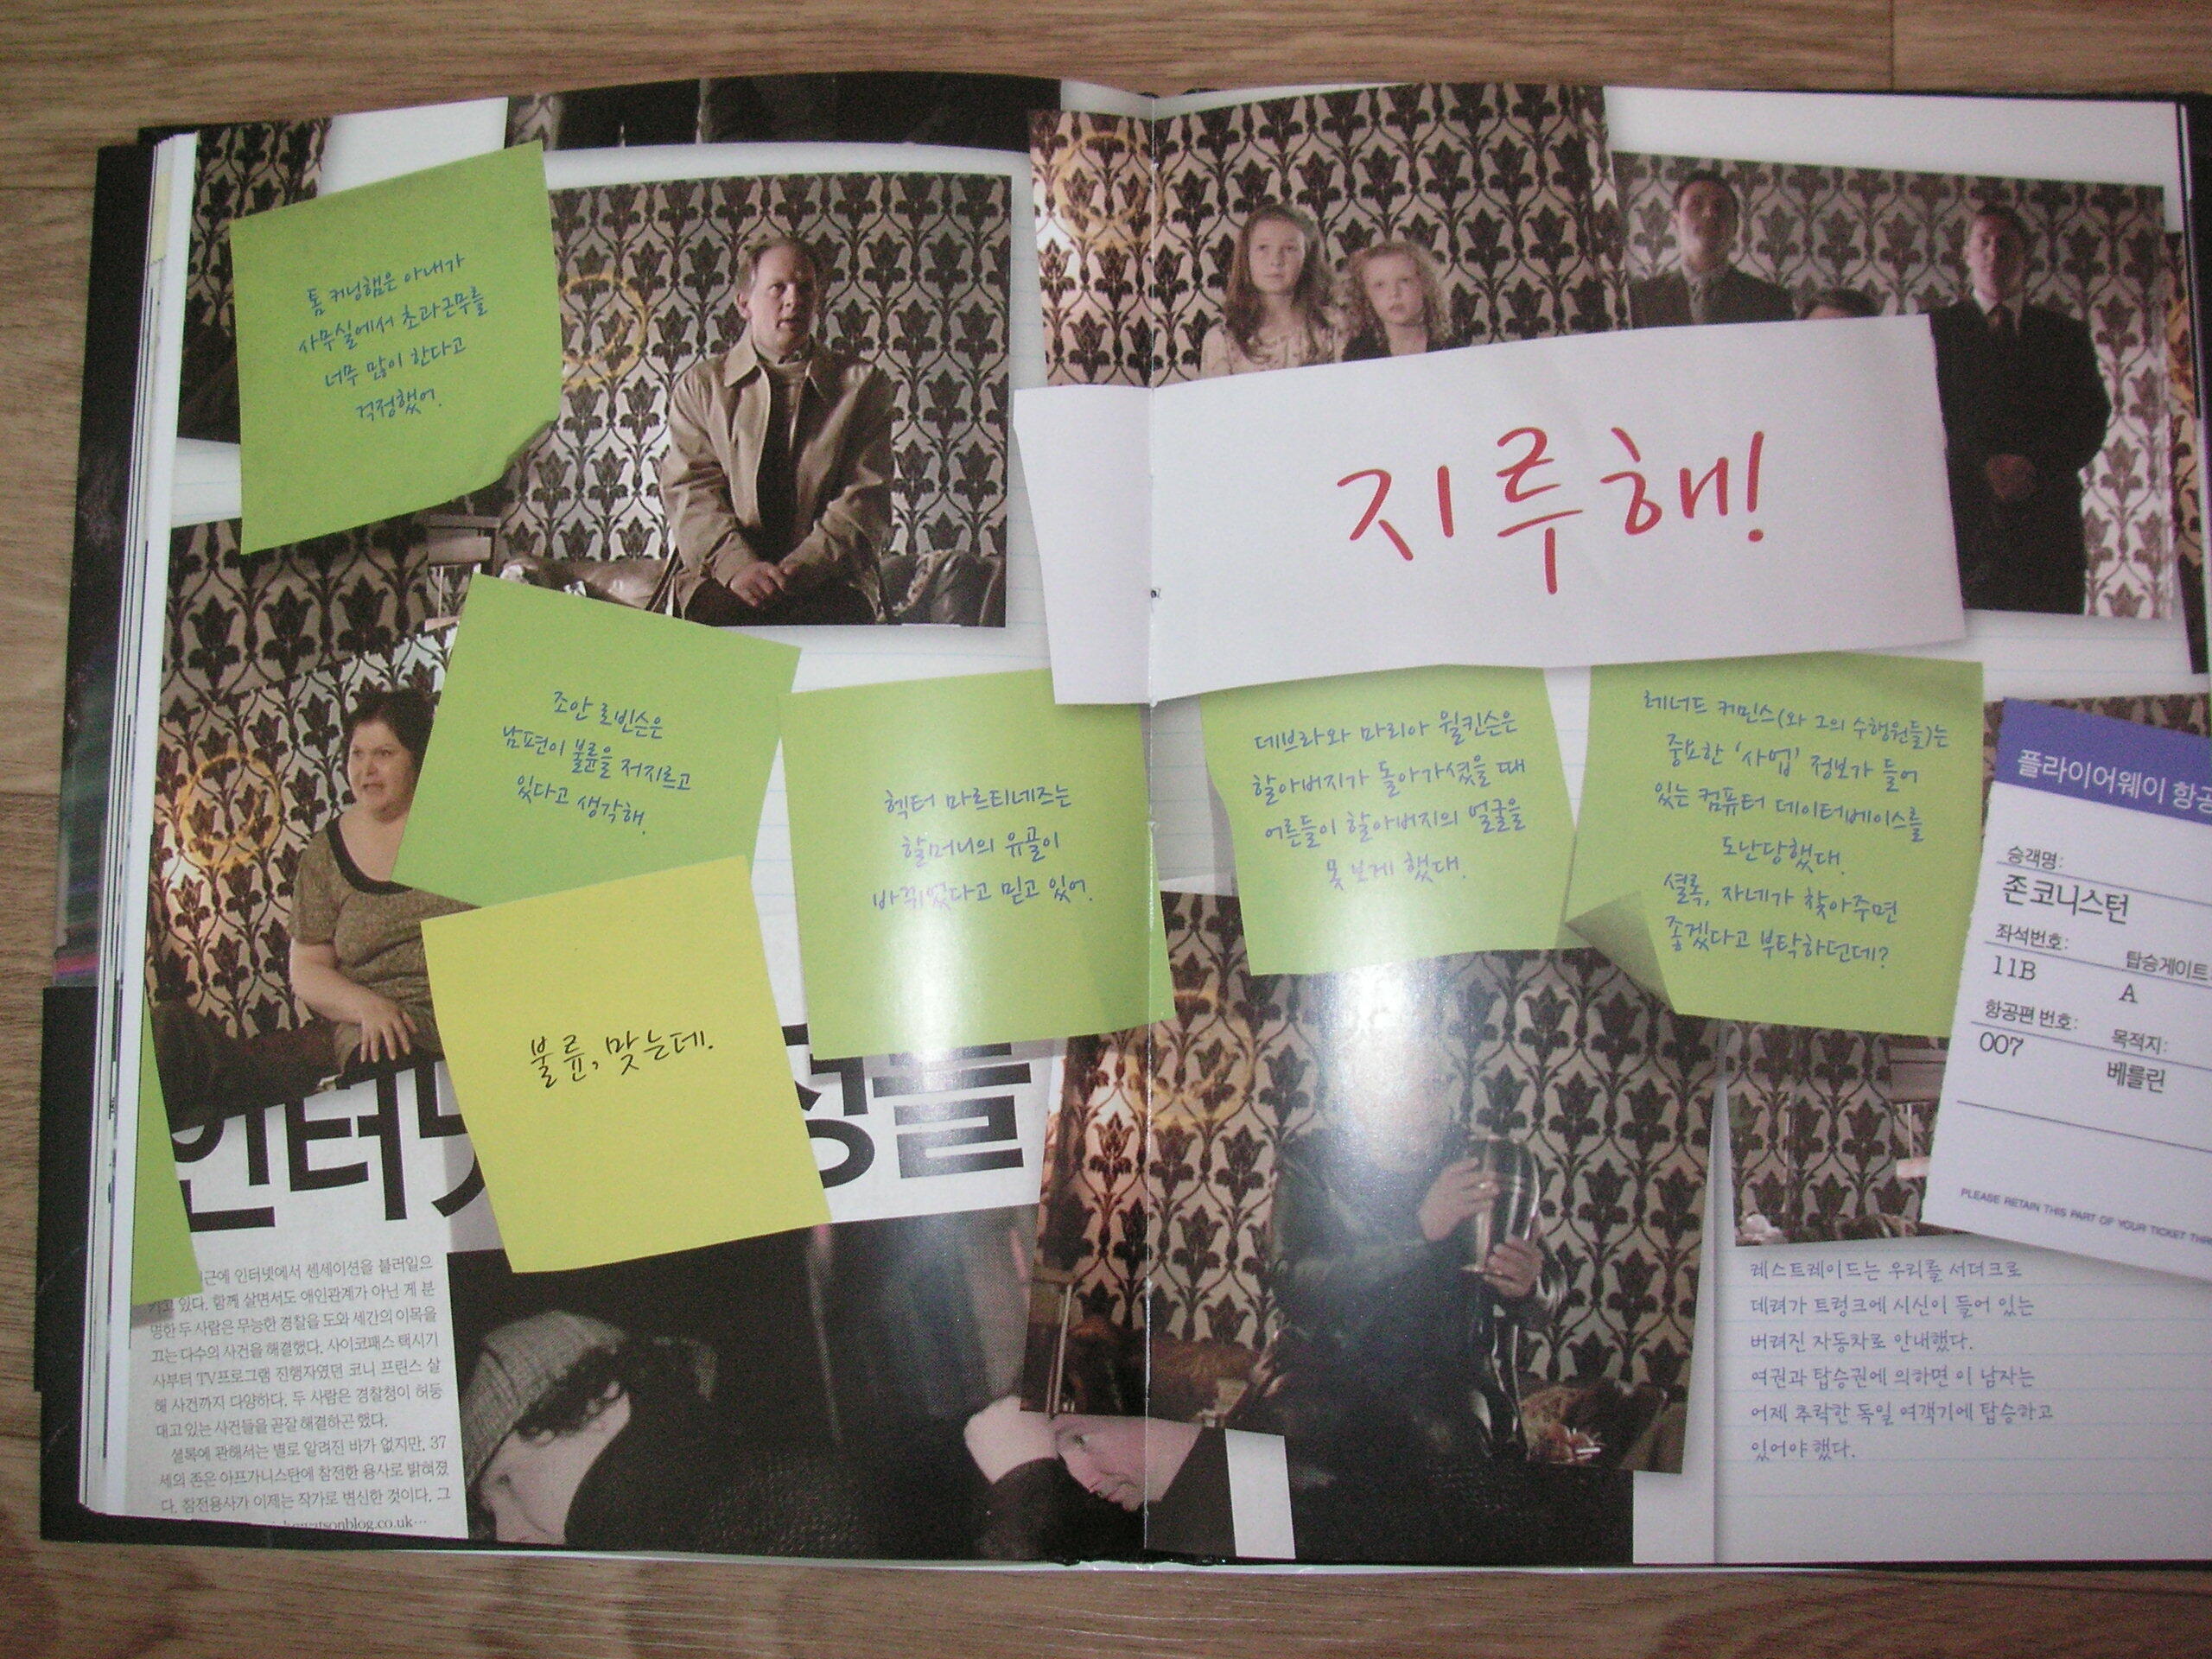 톰 커닝햄은 아내가
사무실에서 초과근무를
너무 많이 한다고
걱정했어.
조안 로빈슨은
남편이 불륜을 저지르고
있다고 생각해.
불륜, 맞는데.
헥터 마르티네즈는
할머니의 유골이
바뀌었다고 믿고 있어.
인터넷
정을
최근에 인터넷에서 센세이션을 불러일으
키고 있다. 함께 살면서도 애인관계가 아닌 게 분
명한 두 사람은 무능한 경찰을 도와 세간의 이목을
끄는 다수의 사건을 해결했다. 사이코패스 택시기
사부터 TV프로그램 진행자였던 코니 프린스 살
해 사건까지 다양하다. 두 사람은 경찰청이 허둥
대고 있는 사건들을 곧잘 해결하곤 했다.
셜록에 관해서는 별로 알려진 바가 없지만, 37
세의 존은 아프가니스탄에 참전한 용사로 밝혀졌
다. 참전용사가 이제는 작가로 변신한 것이다. 그
watsonblog.co.uk…
지루해!
데브라와 마리아 윌킨슨은
할아버지가 돌아가셨을 때
어른들이 할아버지의 얼굴을
못 보게 했대.
레너드 커민스(와 그의 수행원들)는
중요한 '사업' 정보가 들어
있는 컴퓨터 데이터베이스를
도난당했대.
셜록, 자네가 찾아주면
좋겠다고 부탁하던데?
플라이어웨이 항공
승객명:
존코니스턴
좌석번호:
탑승게이트
11B
A
항공편 번호:
목적지:
007
베를린
PLEASE RETAIN THIS PART OF YOUR TICKET THR
레스트레이드는 우리를 서더크로
데려가 트렁크에 시신이 들어 있는
버려진 자동차로 안내했다.
여권과 탑승권에 의하면 이 남자는
어제 추락한 독일 여객기에 탑승하고
있어야 했다.